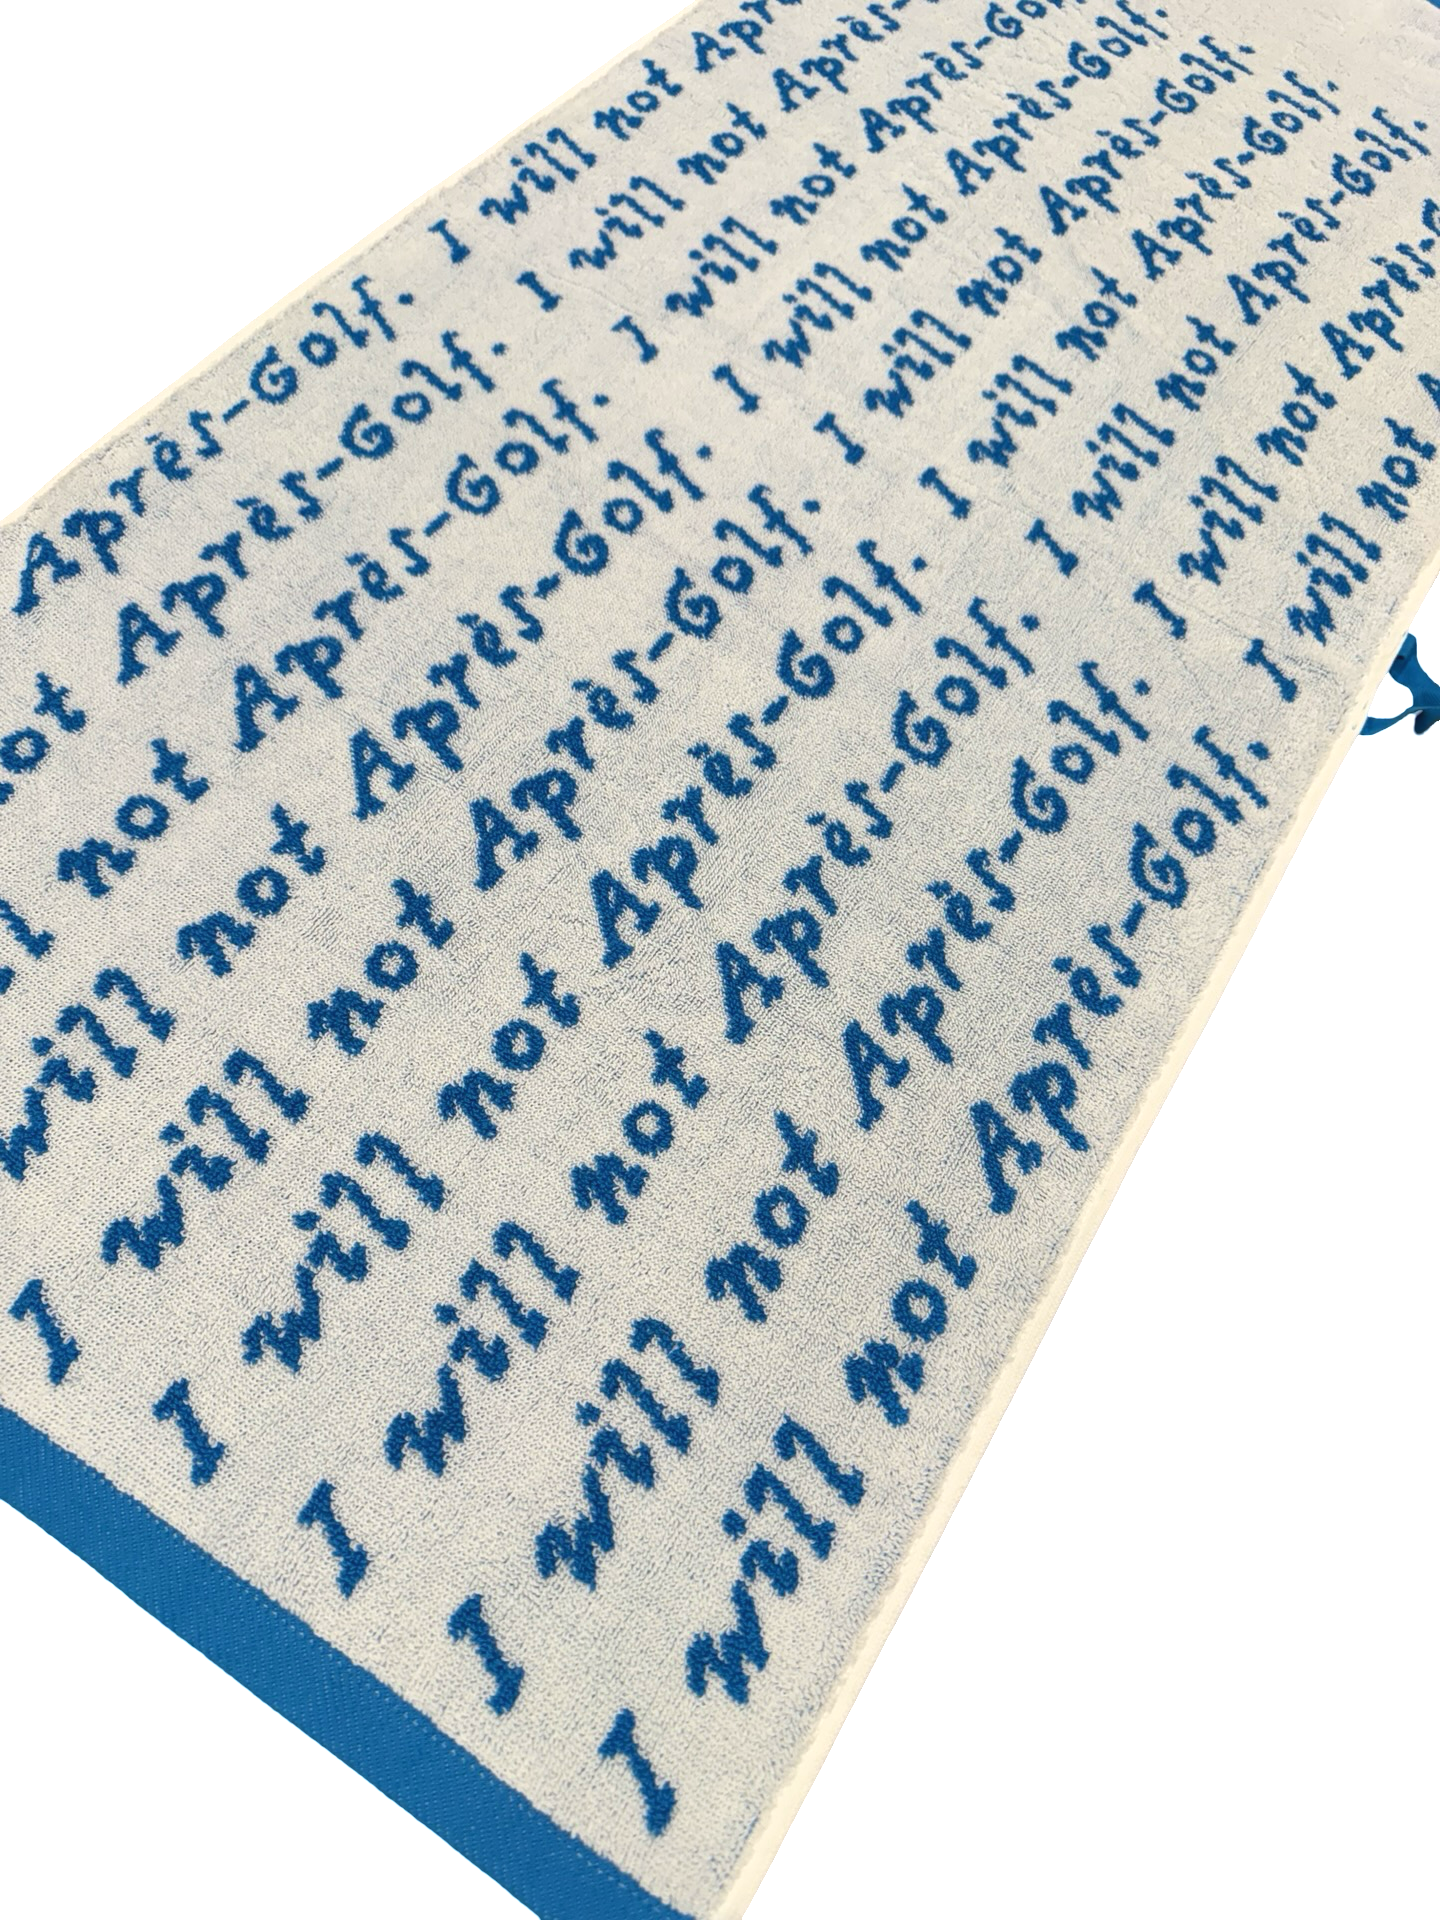 Après-Golf. I will not Apr
not Après-Golf. I will not Après-
not Après-Golf. I will not Après-Gol
will not Après-Golf. I will not Après-Golf.
I will not Après-Golf. I will not Après-Golf.
I will not Après-Golf. I will not Après-Golf.
I will not Après-Golf. I will not Après-Golf.
I will not Après-Golf. I will not Après-
I will not Après-Golf. I will not